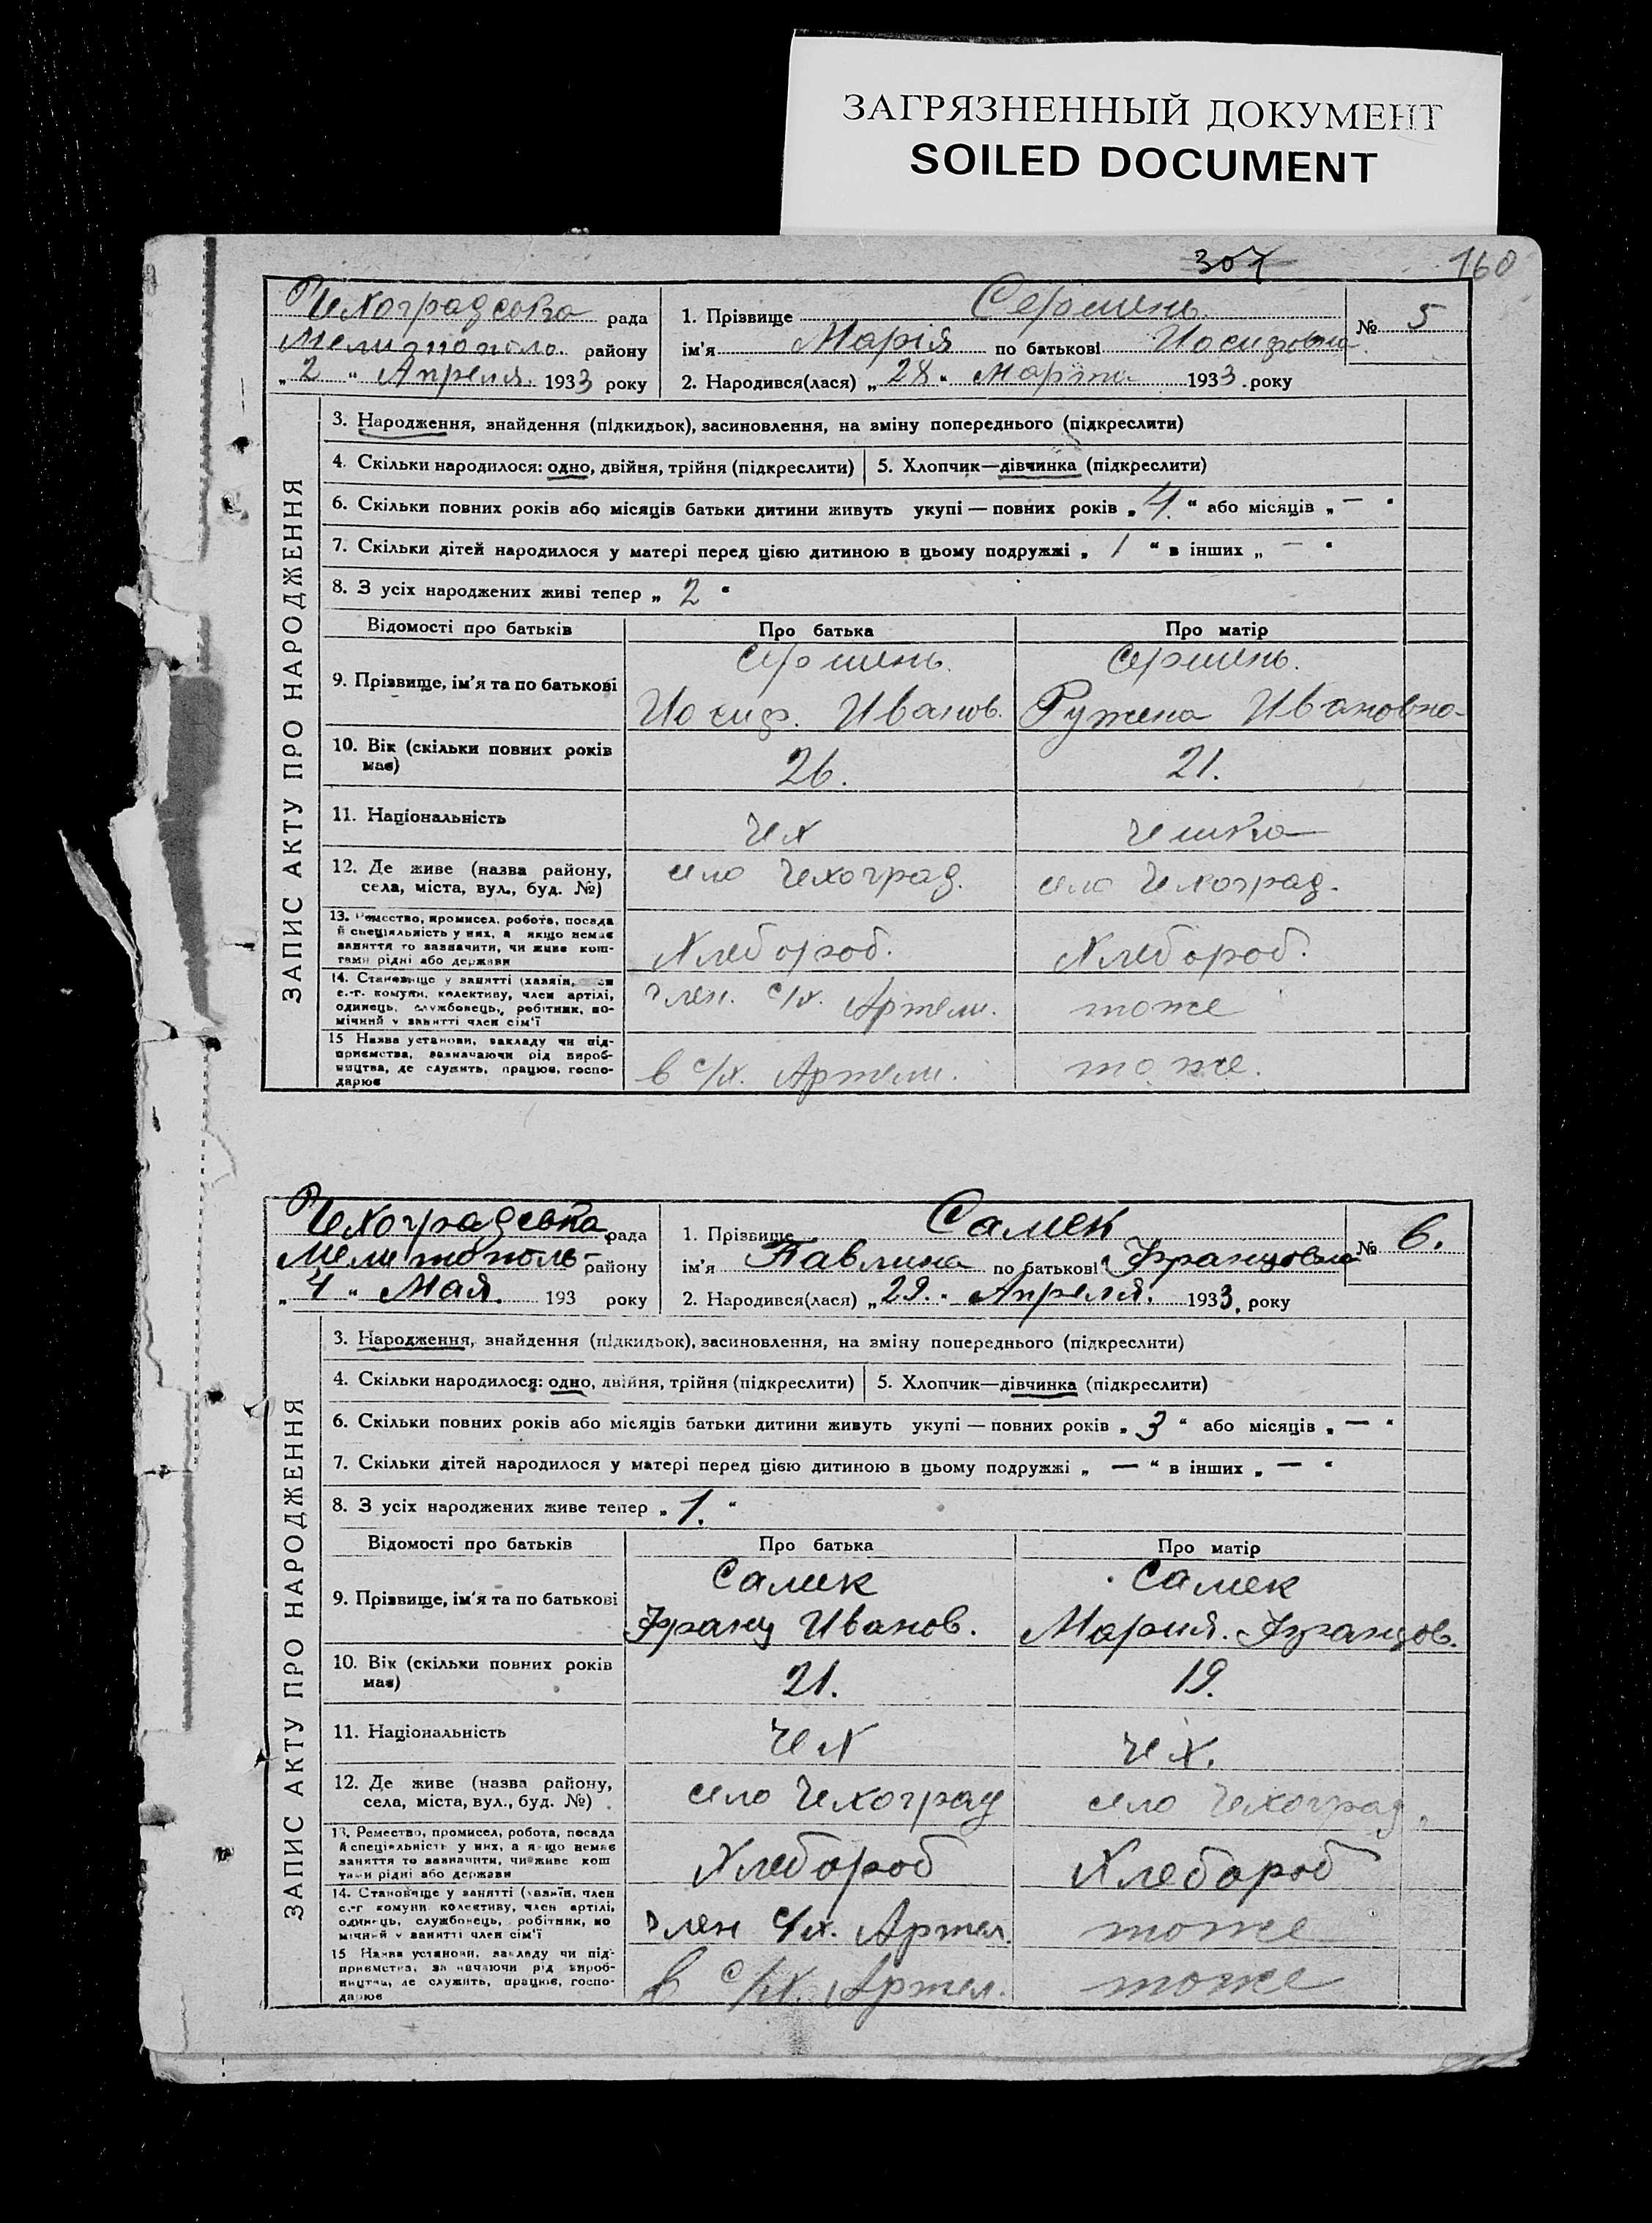 ЗАГРЯЗНЕННЫЙ ДОКУМЕНТ
SOILED DOCUMENT
307 160
Чехоградсвка рада 1. Прізвище Сершень № 5
Мелитополь району ім'я Марія по батькові Иосифовна
„2“ Апреля. 1933 року 2. Народився(лася) „28“ Марта 1933. року
ЗАПИС АКТУ ПРО НАРОДЖЕННЯ
3. Народження, знайдення (підкидьок), засиновлення, на зміну попереднього (підкреслити)
4. Скільки народилося: одно, двійня, трійня (підкреслити) 5. Хлопчик—дівчинка (підкреслити)
6. Скільки повних років або місяців батьки дитини живуть укупі — повних років „4.“ або місяців „—“
7. Скільки дітей народилося у матері перед цією дитиною в цьому подружжі „1“ в інших „—“
8. З усіх народжених живі тепер „2“
Відомості про батьків Про батька Про матір
9. Прізвище, ім'я та по батькові Сершень. Сершень.
Иосиф. Иванов. Ружена Ивановна
10. Вік (скільки повних років має) 26. 21.
11. Національність Чех Чешка
12. Де живе (назва району, село Чехоград. село Чехоград.
села, міста, вул., буд. №)
13. Ремество, промисел, робота, посада
й спеціяльність у них, а якщо немає
заняття то зазначити, чи живе кош- Хлебороб. Хлебороб.
тами рідні або держави
14. Становище у занятті (хазяїн, член
с.-г. комуни, колективу, член артілі, Член. с/х. Артели. тоже
одинець, службовець, робітник, по-
мічний у занятті член сім'ї
15 Назва установи, закладу чи під-
приємства, зазначаючи рід вироб-
ництва, де служить, працює, госпо- в с/х. Артели. тоже.
дарює
Чехоградсвка рада 1. Прізвище Самек № 6.
Мелитополь- району ім'я Павлина по батькові Францовна
„4“ Мая. 193 року 2. Народився(лася) „29.“ Апреля. 1933. року
ЗАПИС АКТУ ПРО НАРОДЖЕННЯ
3. Народження, знайдення (підкидьок), засиновлення, на зміну попереднього (підкреслити)
4. Скільки народилося: одно, двійня, трійня (підкреслити) 5. Хлопчик—дівчинка (підкреслити)
6. Скільки повних років або місяців батьки дитини живуть укупі — повних років „3“ або місяців „—“
7. Скільки дітей народилося у матері перед цією дитиною в цьому подружжі „—“ в інших „—“
8. З усіх народжених живе тепер „1.“
Відомості про батьків Про батька Про матір
9. Прізвище, ім'я та по батькові Самек Самек
Франц Иванов. Мария. Францов.
10. Вік (скільки повних років має) 21. 19.
11. Національність Чех Чех.
12. Де живе (назва району, село Чехоград село Чехоград.
села, міста, вул., буд. №)
13. Ремество, промисел, робота, посада
й спеціяльність у них, а якщо немає
заняття то зазначити, чи живе кош Хлебороб Хлебороб
тами рідні або держави
14. Становище у занятті (хазяїн, член
с.-г комуни колективу, член артілі,
одинець, службовець, робітник, по Член с/х. Артел. тоже
мічний у занятті член сім'ї
15 Назва установи, закладу чи під-
приємства, зазначаючи рід вироб-
ництва, де служить, працює, госпо- в с/х. Артел. тоже
дарює